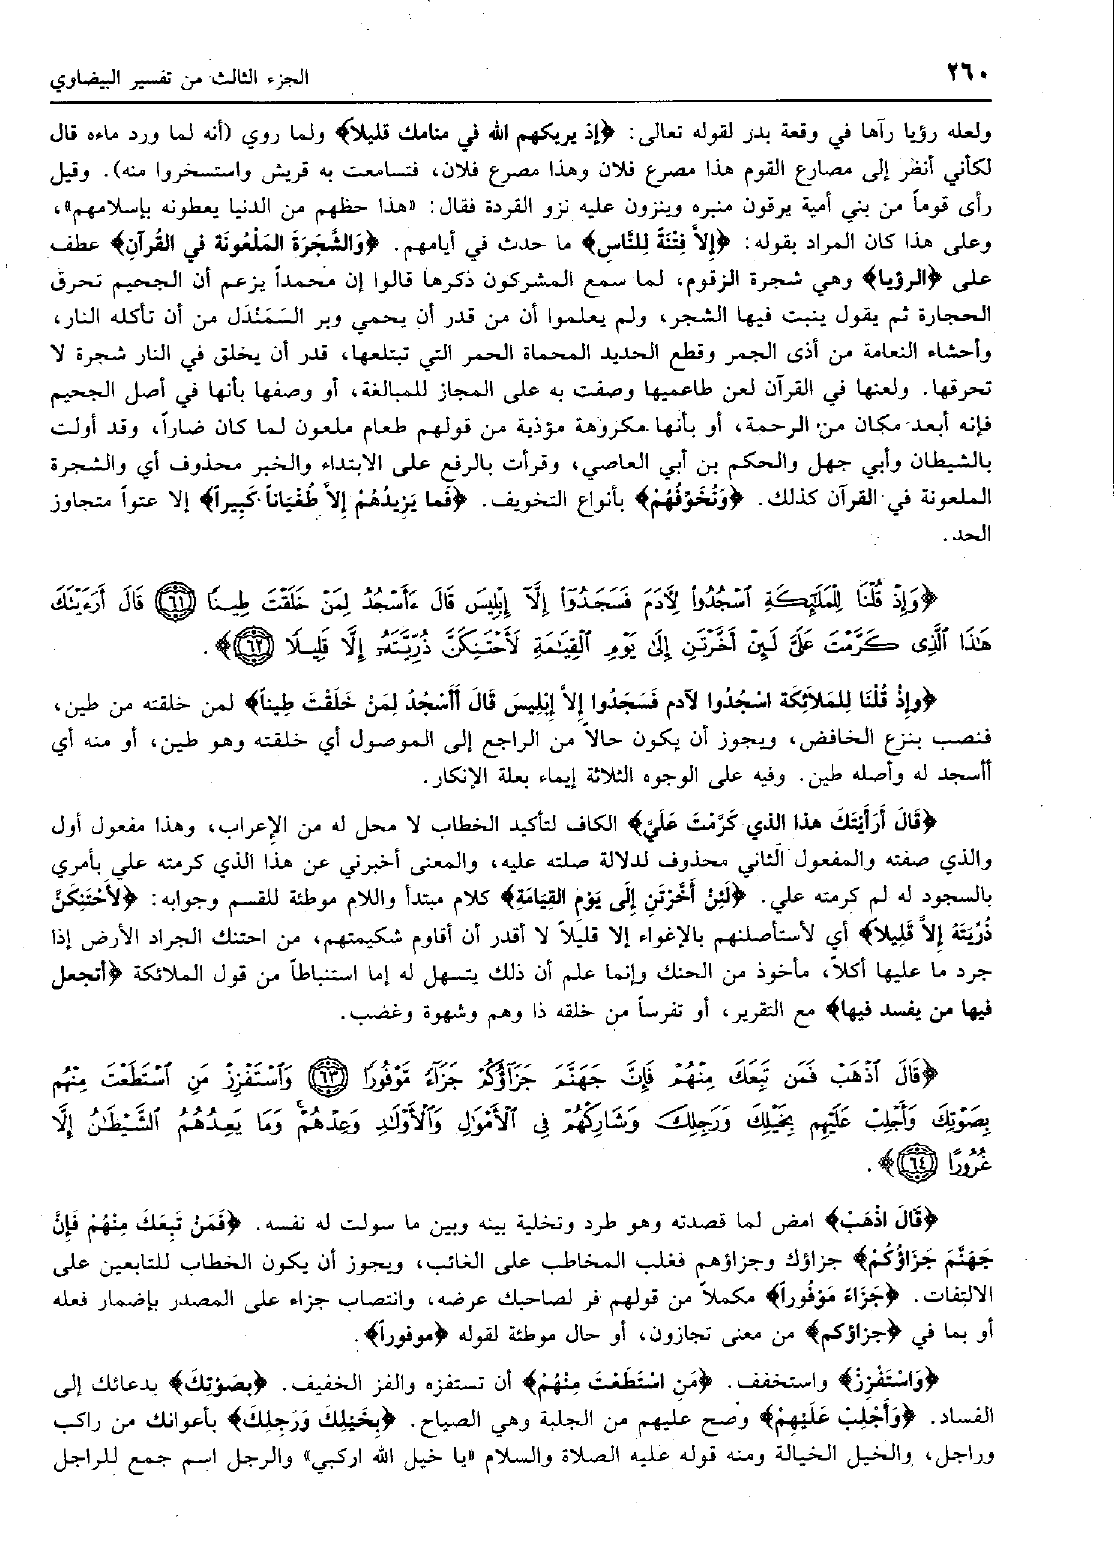 ٢٦٠
الجزء الثالث من تفسير البيضاوي
ولعله رؤيا رآها في وقعة بدر لقوله تعالى: ﴿إذ يريكهم الله في منامك قليلاً﴾ ولما روي (أنه لما ورد ماءه قال
لكأني أنظر إلى مصارع القوم هذا مصرع فلان وهذا مصرع فلان، فتسامعت به قريش واستسخروا منه). وقيل
رأى قوماً من بني أمية يرقون منبره وينزون عليه نزو القردة فقال: «هذا حظهم من الدنيا يعطونه بإسلامهم»،
وعلى هذا كان المراد بقوله: ﴿إِلاَّ فِتْنَةً لِلنَّاسِ﴾ ما حدث في أيامهم. ﴿وَالشَّجَرَةَ المَلْعُونَةَ في القُرآنِ﴾ عطف
على ﴿الرؤيا﴾ وهي شجرة الزقوم، لما سمع المشركون ذكرها قالوا إن محمداً يزعم أن الجحيم تحرق
الحجارة ثم يقول ينبت فيها الشجر، ولم يعلموا أن من قدر أن يحمي وبر السَمَنْدَل من أن تأكله النار،
وأحشاء النعامة من أذى الجمر وقطع الحديد المحماة الحمر التي تبتلعها، قدر أن يخلق في النار شجرة لا
تحرقها. ولعنها في القرآن لعن طاعميها وصفت به على المجاز للمبالغة، أو وصفها بأنها في أصل الجحيم
فإنه أبعد مكان من الرحمة، أو بأنها مكروهة مؤذية من قولهم طعام ملعون لما كان ضاراً، وقد أولت
بالشيطان وأبي جهل والحكم بن أبي العاصي، وقرأت بالرفع على الابتداء والخبر محذوف أي والشجرة
الملعونة في القرآن كذلك. ﴿وَنُخَوِّفُهُمْ﴾ بأنواع التخويف. ﴿فَما يَزِيدُهُمْ إِلاَّ طُغْيَاناً كَبِيراً﴾ إلا عتواً متجاوز
الحد.
﴿وَإِذْ قُلْنَا لِلْمَلَٰٓئِكَةِ ٱسْجُدُواْ لِأٓدَمَ فَسَجَدُوٓاْ إِلَّآ إِبْلِيسَ قَالَ ءَأَسْجُدُ لِمَنْ خَلَقْتَ طِينًا (٦١) قَالَ أَرَءَيْتَكَ
هَٰذَا ٱلَّذِى كَرَّمْتَ عَلَىَّ لَئِنْ أَخَّرْتَنِ إِلَىٰ يَوْمِ ٱلْقِيَٰمَةِ لَأَحْتَنِكَنَّ ذُرِّيَّتَهُۥٓ إِلَّا قَلِيلًا (٦٢)﴾.
﴿وَإِذْ قُلْنَا لِلمَلاَئِكَة اسْجُدُوا لآدم فَسَجَدُوا إِلاَّ إِبْلِيسَ قَالَ أَأَسْجُدُ لِمَنْ خَلَقْتَ طِيناً﴾ لمن خلقته من طين،
فنصب بنزع الخافض، ويجوز أن يكون حالاً من الراجع إلى الموصول أي خلقته وهو طين، أو منه أي
أأسجد له وأصله طين. وفيه على الوجوه الثلاثة إيماء بعلة الإنكار.
﴿قَالَ أَرَأَيْتَكَ هذا الذي كَرَّمْتَ عَلَيَّ﴾ الكاف لتأكيد الخطاب لا محل له من الإعراب، وهذا مفعول أول
والذي صفته والمفعول الثاني محذوف لدلالة صلته عليه، والمعنى أخبرني عن هذا الذي كرمته علي بأمري
بالسجود له لم كرمته علي. ﴿لَئِنْ أَخَّرْتَنِ إِلَى يَوْمِ القِيَامَةِ﴾ كلام مبتدأ واللام موطئة للقسم وجوابه: ﴿لأَحْتَنِكَنَّ
ذُرِّيَتَهُ إِلاَّ قَلِيلاً﴾ أي لأستأصلنهم بالإغواء إلا قليلاً لا أقدر أن أقاوم شكيمتهم، من احتنك الجراد الأرض إذا
جرد ما عليها أكلاً، مأخوذ من الحنك وإنما علم أن ذلك يتسهل له إما استنباطاً من قول الملائكة ﴿أتجعل
فيها من يفسد فيها﴾ مع التقرير، أو تفرساً من خلقه ذا وهم وشهوة وغضب.
﴿قَالَ ٱذْهَبْ فَمَن تَبِعَكَ مِنْهُمْ فَإِنَّ جَهَنَّمَ جَزَآؤُكُمْ جَزَآءً مَّوْفُورًا (٦٣) وَٱسْتَفْزِزْ مَنِ ٱسْتَطَعْتَ مِنْهُم
بِصَوْتِكَ وَأَجْلِبْ عَلَيْهِم بِخَيْلِكَ وَرَجِلِكَ وَشَارِكْهُمْ فِى ٱلْأَمْوَٰلِ وَٱلْأَوْلَٰدِ وَعِدْهُمْ ۚ وَمَا يَعِدُهُمُ ٱلشَّيْطَٰنُ إِلَّا
غُرُورًا (٦٤)﴾.
﴿قَالَ اذْهَبْ﴾ امض لما قصدته وهو طرد وتخلية بينه وبين ما سولت له نفسه. ﴿فَمَنْ تَبِعَكَ مِنْهُمْ فَإِنَّ
جَهَنَّمَ جَزَاؤُكُمْ﴾ جزاؤك وجزاؤهم فغلب المخاطب على الغائب، ويجوز أن يكون الخطاب للتابعين على
الالتفات. ﴿جَزَاءَ مَوْفُوراً﴾ مكملاً من قولهم فر لصاحبك عرضه، وانتصاب جزاء على المصدر بإضمار فعله
أو بما في ﴿جزاؤكم﴾ من معنى تجازون، أو حال موطئة لقوله ﴿موفوراً﴾.
﴿وَاسْتَفْزِزْ﴾ واستخفف. ﴿مَنِ اسْتَطَعْتَ مِنْهُمْ﴾ أن تستفزه والفز الخفيف. ﴿بِصَوْتِكَ﴾ بدعائك إلى
الفساد. ﴿وَأَجْلِبْ عَلَيْهِمْ﴾ وصح عليهم من الجلبة وهي الصياح. ﴿بِخَيْلِكَ وَرَجِلِكَ﴾ بأعوانك من راكب
وراجل، والخيل الخيالة ومنه قوله عليه الصلاة والسلام «يا خيل الله اركبي» والرجل اسم جمع للراجل